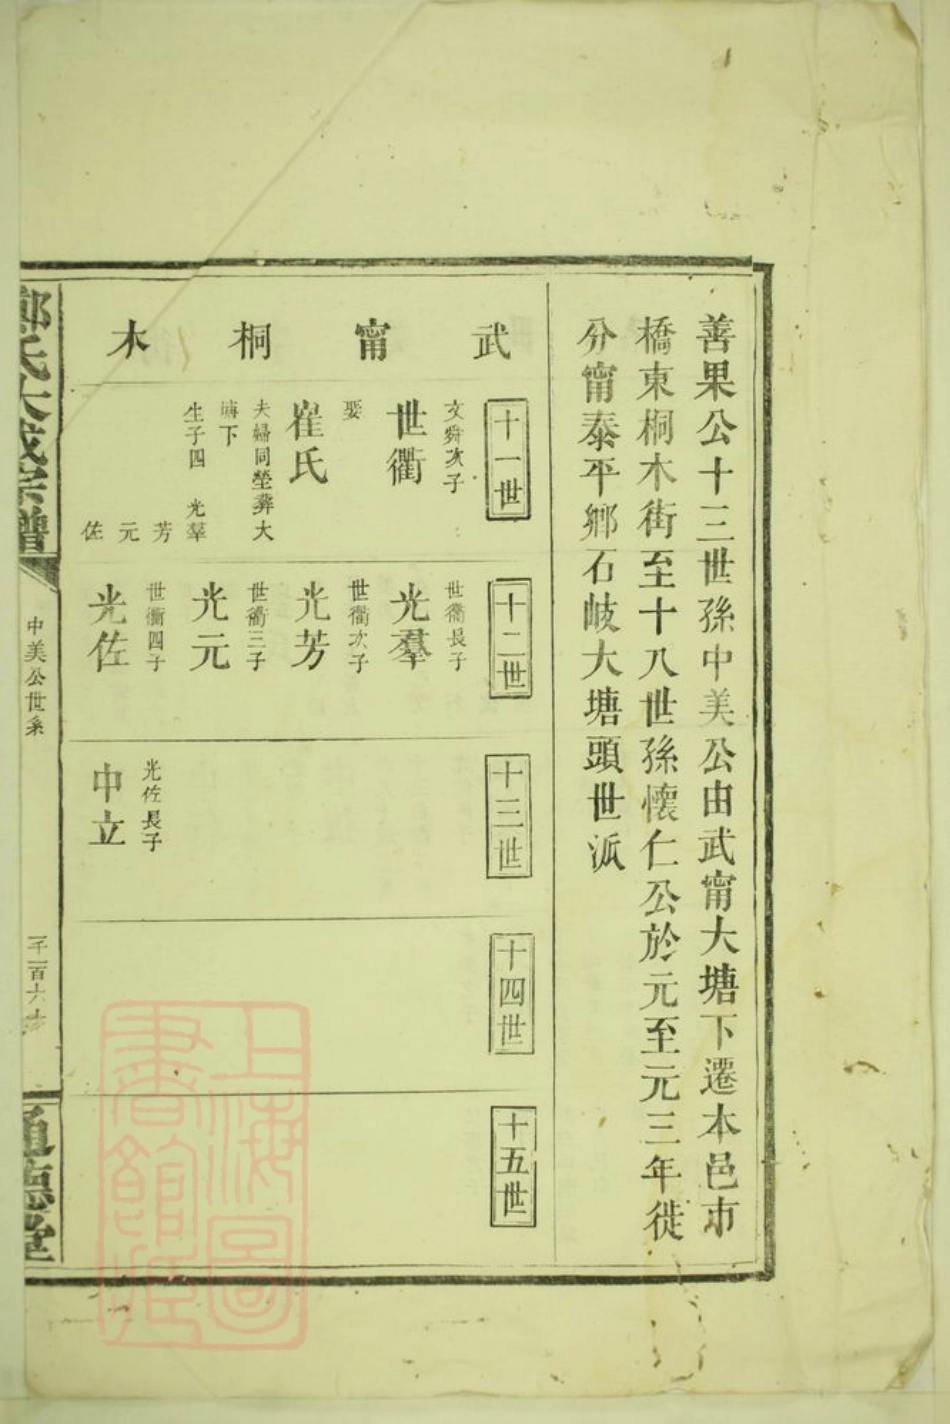 善果公十三世孫中美公由武甯大塘下遷本邑市
橋東桐木街至十八世孫懷仁公於元至元三年徙
分甯泰平鄉石岐大塘頭世派
武甯桐木
十一世
文舜次子
世衢
娶
崔氏
夫婦同塋葬大
塘下
生子四 光羣
芳
元
佐
十二世
世衢長子
光羣
世衢次子
光芳
世衢三子
光元
世衢四子
光佐
十三世
光佐長子
中立
十四世
十五世
鄭氏大成宗譜
中美公世系
通德堂
上海圖
書館藏